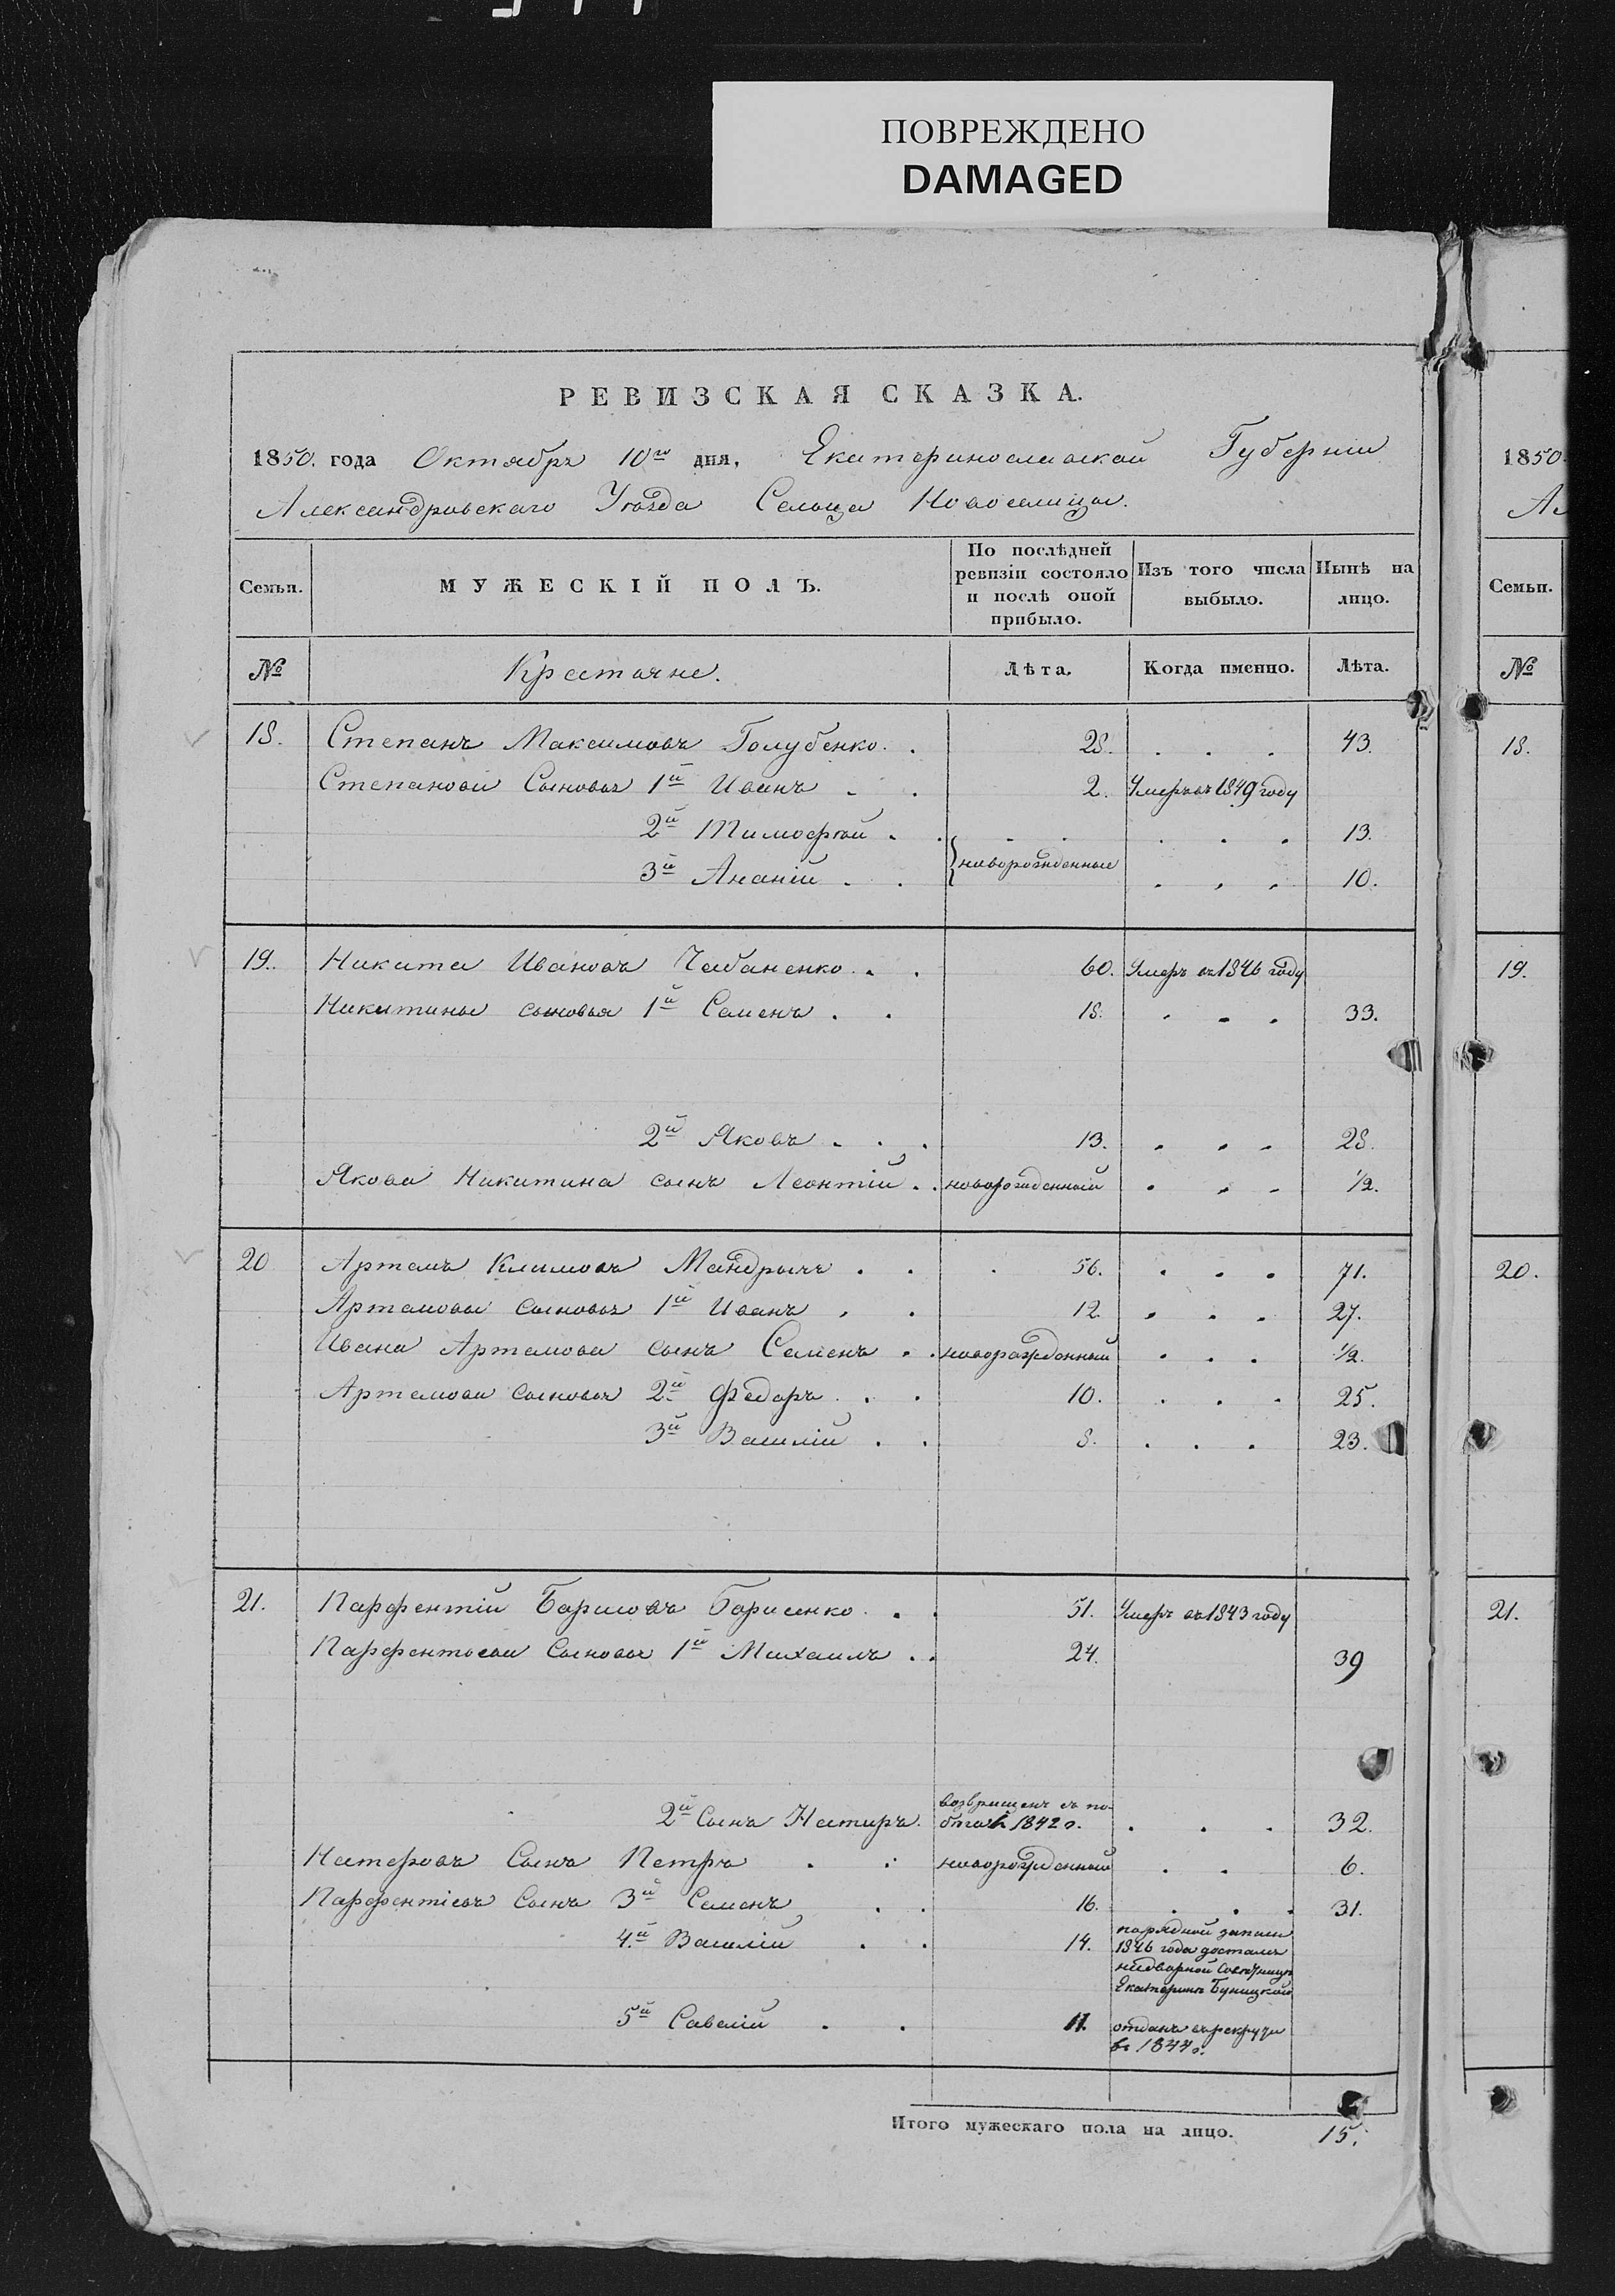 ПОВРЕЖДЕНО
DAMAGED
РЕВИЗСКАЯ СКАЗКА.
1850. года Октября 10го дня, Екатеринославской Губерніи
Александровскаго Уѣзда Сельца Новоселицы.
Семьи. МУЖЕСКІЙ ПОЛЪ. По послѣдней ревизіи состояло и послѣ оной прибыло. Изъ того числа выбыло. Нынѣ на лицо.
№ Крестьяне. Лѣта. Когда именно. Лѣта.
18. Степанъ Максимовъ Голубенко . . 28. . . . 43.
Степановы Сыновья 1й Иванъ . . 2. Умеръ въ 1849 году
2й Тимофѣй . . . . . . . 13.
3й Ананій . . новорожденные . . . 10.
19. Никита Ивановъ Чабаненко . . 60. Умеръ въ 1846 году
Никитины сыновья 1й Семенъ . . 18. . . . 33.
2й Яковъ . . . 13. . . . 28.
Якова Никитина сынъ Леонтій . . новорожденный . . . 1/2.
20 Артемъ Климовъ Мандрычъ . . . 56. . . . 71.
Артемовы сыновья 1й Иванъ . . 12. . . . 27.
Ивана Артемова сынъ Семенъ . . новорожденный . . . 1/2.
Артемовы сыновья 2й Федоръ . . 10. . . . 25.
3й Василій . . 8. . . . 23.
21. Парфентій Борисовъ Борисенко . . 51. Умеръ въ 1843 году
Парфентьевы Сыновья 1й Михаилъ . . 24. 39
2й Сынъ Нестиръ. возвращенъ съ по-
бѣга въ 1842 г. . . . 32.
Нестеровъ Сынъ Петръ . . новорожденный . . 6.
Парфентіевъ Сынъ 3й Семенъ . . 16. . . . 31.
4й Василій . . 14.
1846 года
Екатеринѣ Буницкой
5й Савелій . . 11. отданъ въ рекруты
въ 1844 г.
Итого мужескаго пола на лицо. 15.
1850.
Семьи.
№
18.
19.
20.
21.